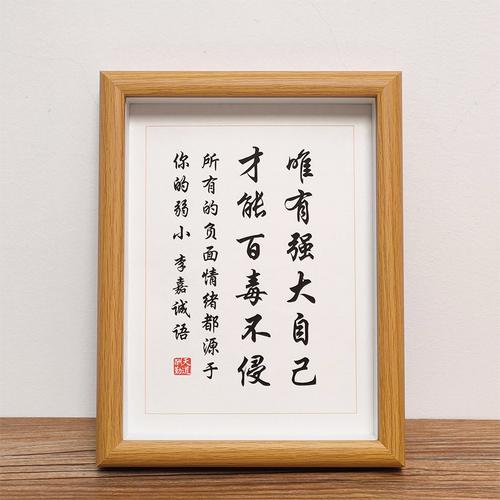 唯有强大自己
才能百毒不侵
所有的负面情绪都源于
你的弱小 李嘉诚语
天道
酬勤